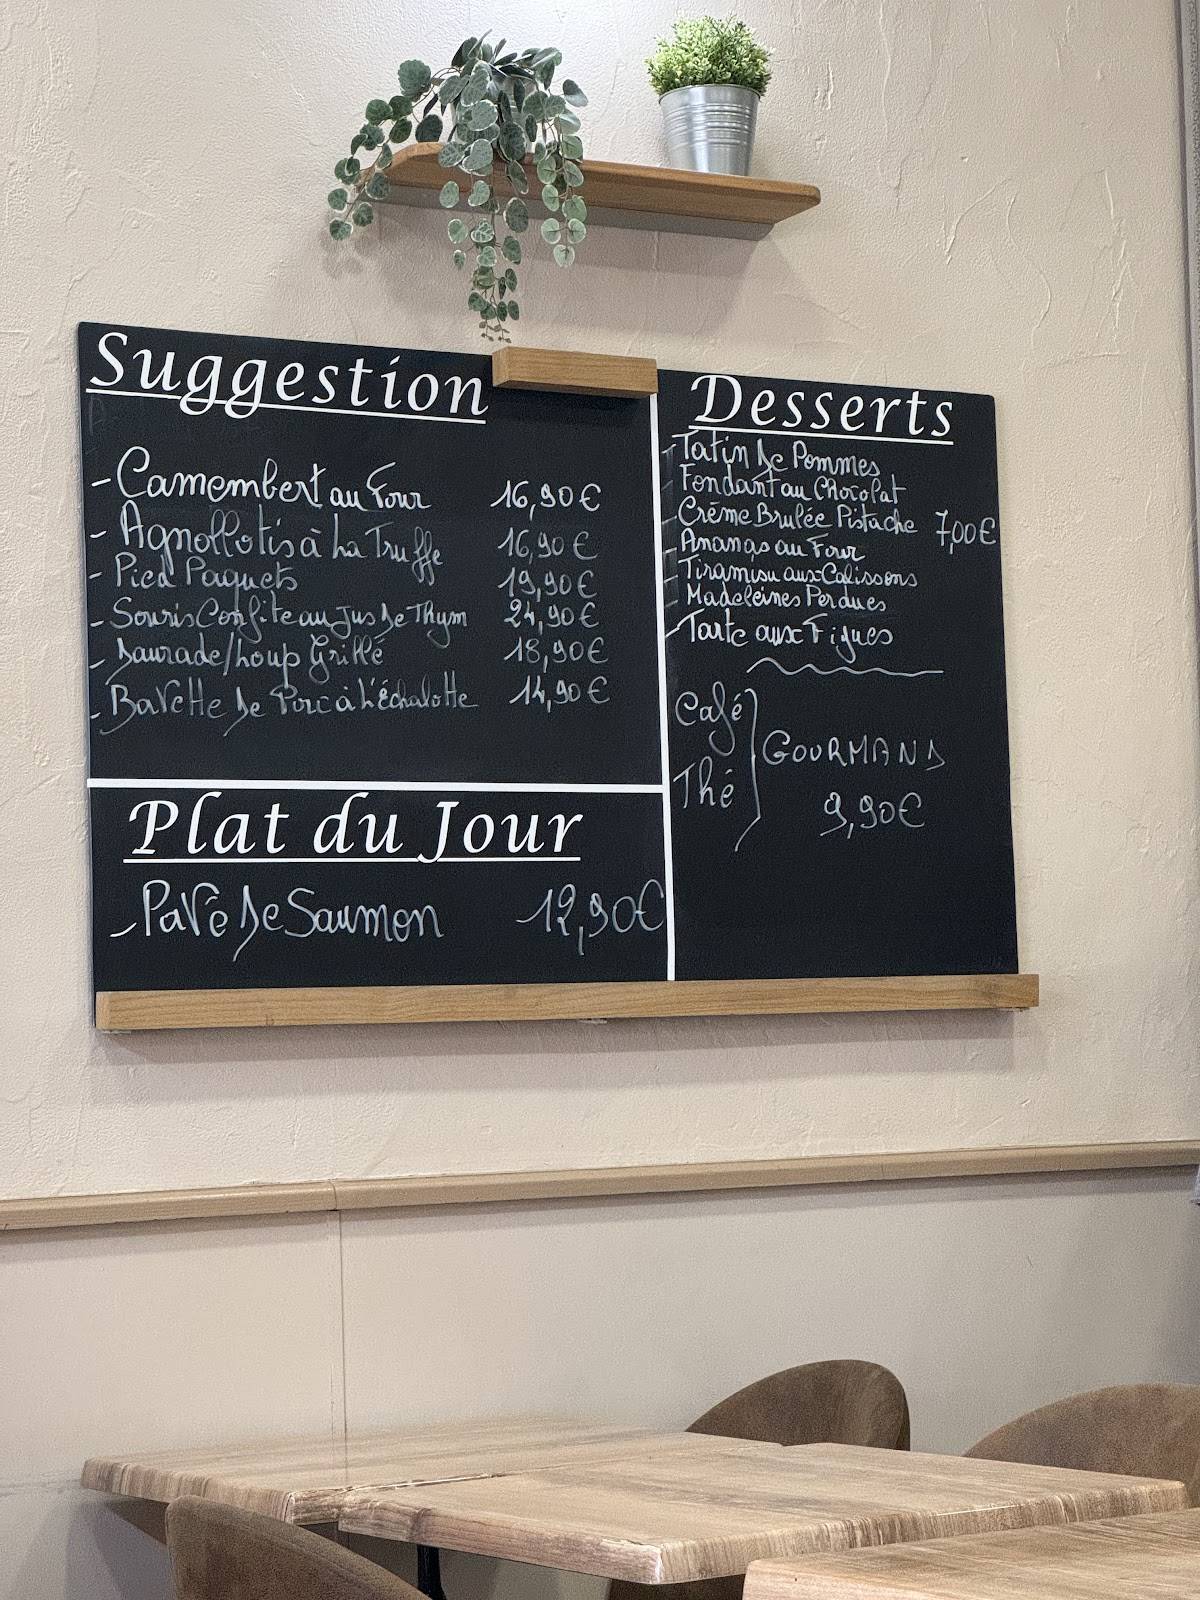 Suggestion
- Camembert au Four 16,90€
- Agnollotis à La Truffe 16,90€
- Pied Paquets 19,90€
- Souris Confite au Jus de Thym 24,90€
- Daurade/Loup Grillé 18,90€
- Bavette de Porc à L'Échalotte 14,90€
Plat du Jour
- Pavé de Saumon 12,90€
Desserts
- Tatin de Pommes
- Fondant au Chocolat
- Crème Brulée Pistache 7,00€
- Ananas au Four
- Tiramisu aux Calissons
- Madeleines Perdues
- Tarte aux Figues
Café
Thé
GOURMAND
9,90€